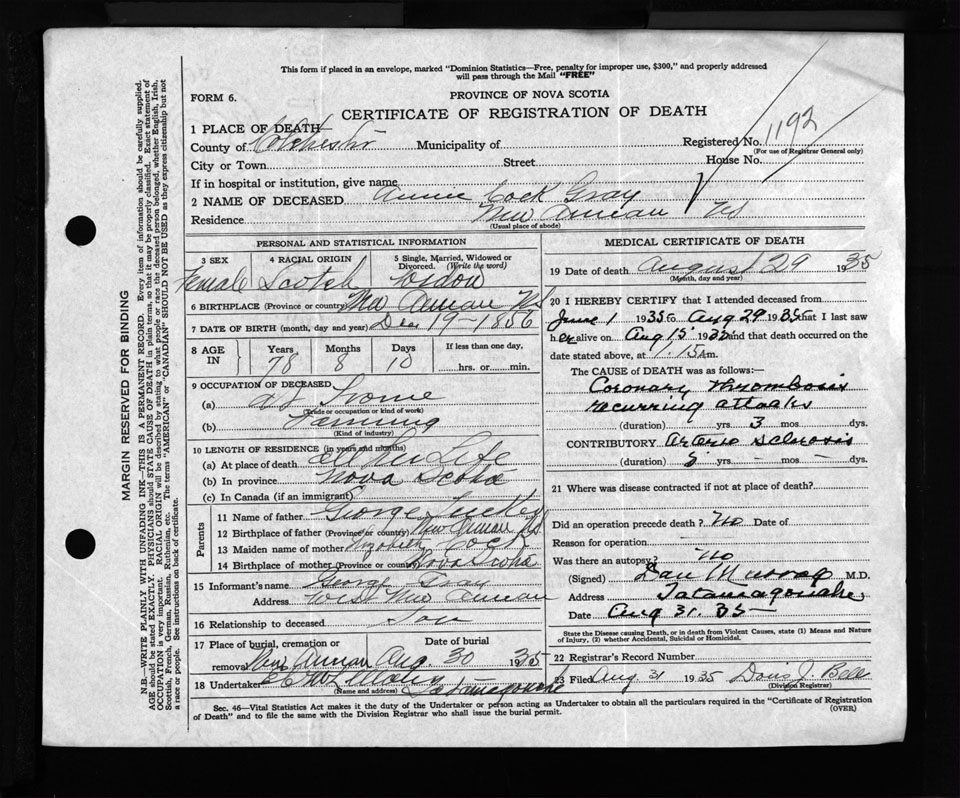 This form if placed in an envelope, marked "Dominion Statistics—Free, penalty for improper use, $300," and properly addressed
will pass through the Mail "FREE"
FORM 6.
PROVINCE OF NOVA SCOTIA
CERTIFICATE OF REGISTRATION OF DEATH
1 PLACE OF DEATH
County of Colchester Municipality of Registered No. 1192
(For use of Registrar General only)
City or Town Street House No.
If in hospital or institution, give name
2 NAME OF DECEASED Annie Cock Gray
Residence New Annan NS
(Usual place of abode)
PERSONAL AND STATISTICAL INFORMATION
3 SEX 4 RACIAL ORIGIN 5 Single, Married, Widowed or
Divorced. (Write the word)
Female Scotch Widow
6 BIRTHPLACE (Province or country) New Annan NS
7 DATE OF BIRTH (month, day and year) Dec 19-1856
8 AGE IN Years Months Days If less than one day,
78 8 10 hrs. or min.
9 OCCUPATION OF DECEASED
(a) at Home
(Trade or occupation or kind of work)
(b) Farming
(Kind of industry)
10 LENGTH OF RESIDENCE (in years and months)
(a) At place of death All her Life
(b) In province Nova Scotia
(c) In Canada (if an immigrant)
Parents
11 Name of father George
12 Birthplace of father (Province or country) New Annan NS
13 Maiden name of mother Elizabeth Cock
14 Birthplace of mother (Province or country) Nova Scotia
15 Informant's name George Gray
Address West New Annan
16 Relationship to deceased Son
17 Place of burial, cremation or Date of burial
removal New Annan Aug 30 1935
18 Undertaker Tatamagouche
(Name and address)
MEDICAL CERTIFICATE OF DEATH
19 Date of death August 29 1935
(Month, day and year)
20 I HEREBY CERTIFY that I attended deceased from
June 1 1935 to Aug 29 1935 that I last saw
her alive on Aug 15 1935 and that death occurred on the
date stated above, at 1.15 a m.
The CAUSE of DEATH was as follows:—
Coronary Thrombosis
recurring attacks
(duration) yrs. 3 mos. dys.
CONTRIBUTORY Arterio Sclerosis
(duration) 5 yrs — mos — dys.
21 Where was disease contracted if not at place of death?
Did an operation precede death? No Date of
Reason for operation
Was there an autopsy? No
(Signed) Dan Murray M.D.
Address Tatamagouche
Date Aug 31. 35
State the Disease causing Death, or in death from Violent Causes, state (1) Means and Nature
of Injury, (2) whether Accidental, Suicidal or Homicidal.
22 Registrar's Record Number
23 Filed Aug 31 1935 Doris J Bell
(Division Registrar)
Sec. 46—Vital Statistics Act makes it the duty of the Undertaker or person acting as Undertaker to obtain all the particulars required in the "Certificate of Registration
of Death" and to file the same with the Division Registrar who shall issue the burial permit. (OVER)
MARGIN RESERVED FOR BINDING
N.B.—WRITE PLAINLY WITH UNFADING INK—THIS IS A PERMANENT RECORD. Every item of information should be carefully supplied.
AGE should be stated EXACTLY. PHYSICIANS should STATE CAUSE OF DEATH in plain terms, so that it may be properly classified. Exact statement of
OCCUPATION is very important. RACIAL ORIGIN will be described by stating to what people or race the deceased person belonged, whether English, Irish,
Scottish, French, German, Russian, Ruthenian, etc. The terms "AMERICAN" or "CANADIAN" SHOULD NOT BE USED as they express citizenship but not
a race or people. See instructions on back of certificate.